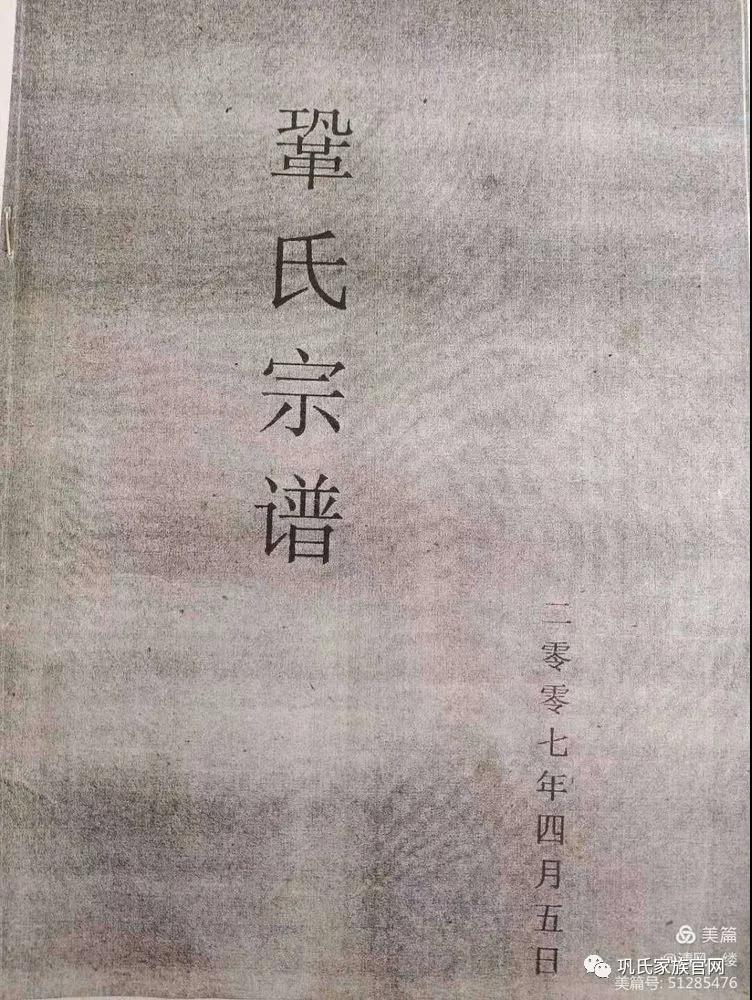 巩氏宗谱
二零零七年四月五日
美篇
巩氏家族官网
美篇号: 51285476